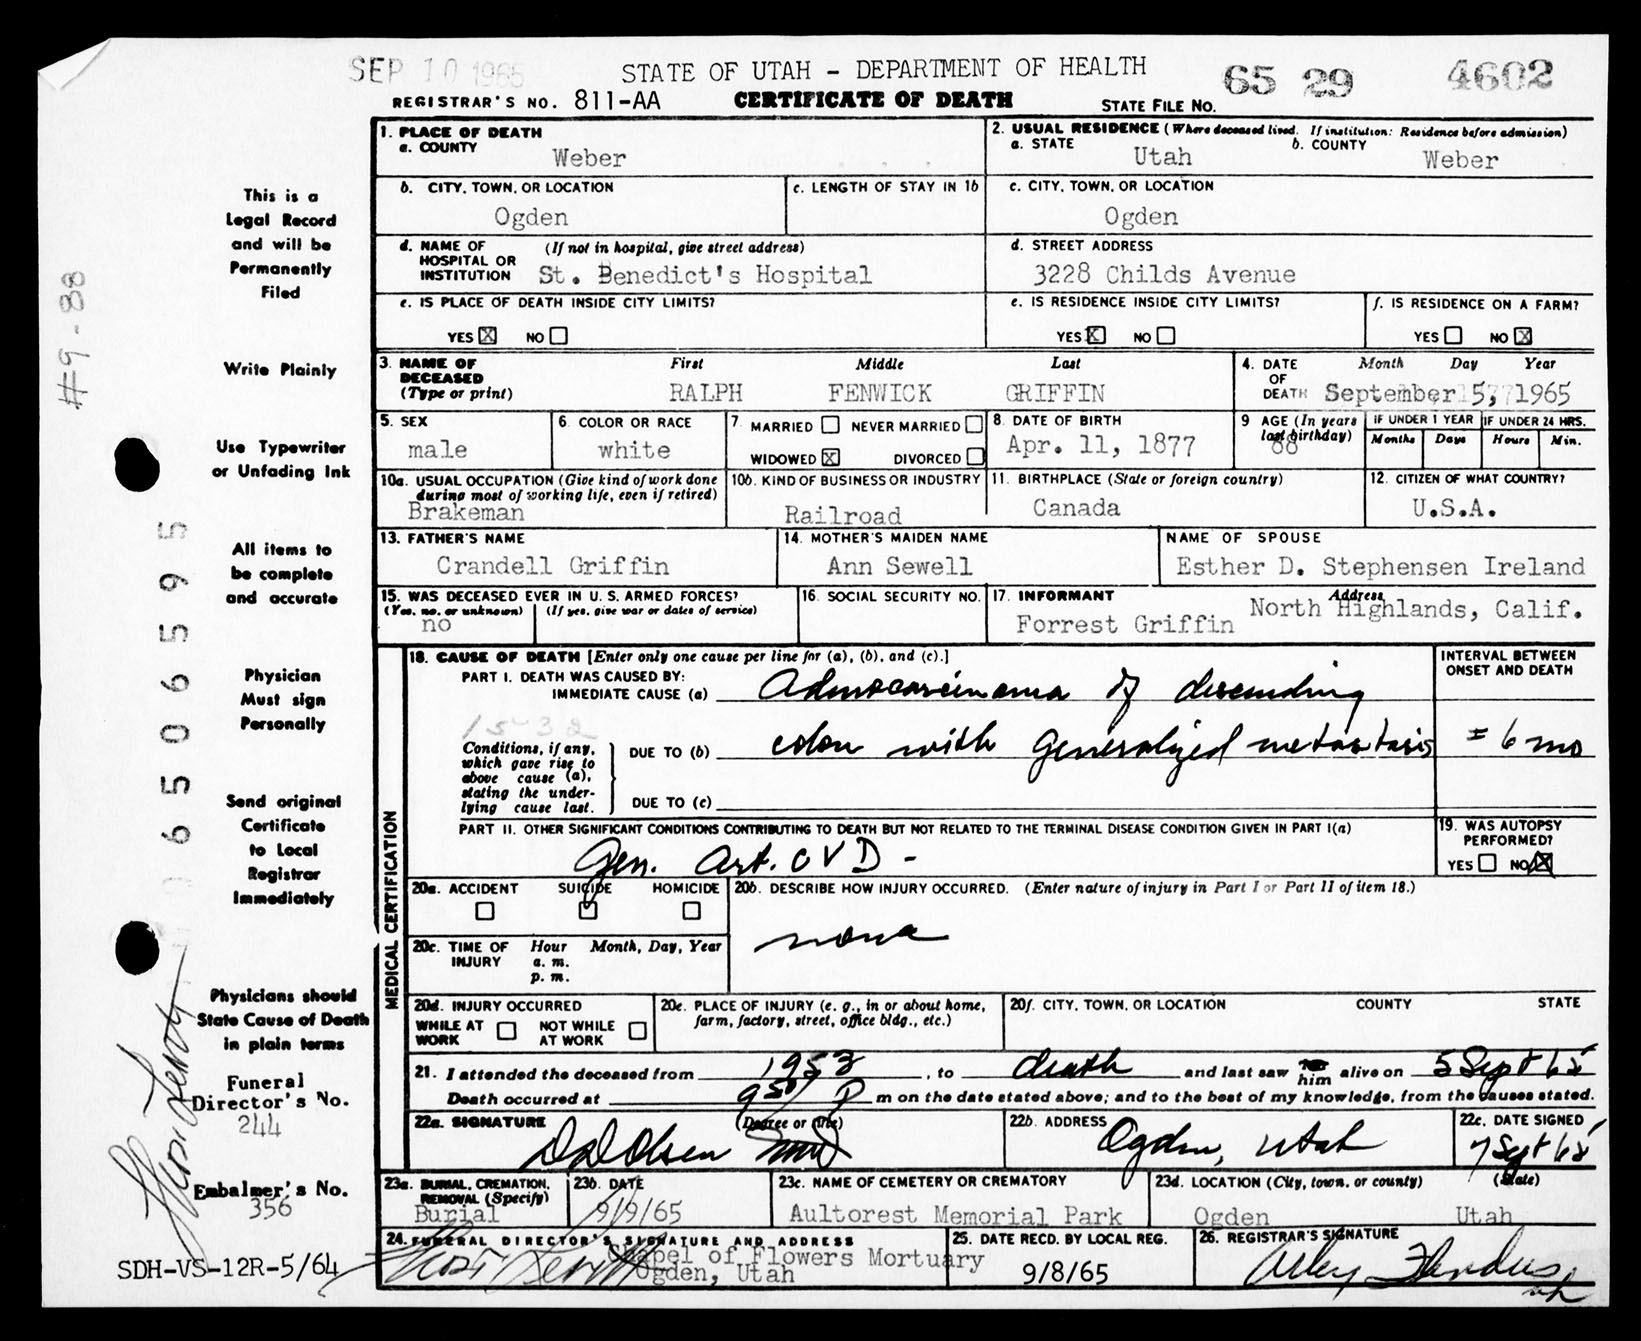 SEP 10 1965
STATE OF UTAH - DEPARTMENT OF HEALTH
65 29 4602
REGISTRAR'S NO. 811-AA CERTIFICATE OF DEATH STATE FILE NO.
1. PLACE OF DEATH
a. COUNTY
Weber
2. USUAL RESIDENCE (Where deceased lived. If institution: Residence before admission)
a. STATE Utah b. COUNTY Weber
b. CITY, TOWN, OR LOCATION
Ogden
c. LENGTH OF STAY IN 1b
c. CITY, TOWN, OR LOCATION
Ogden
d. NAME OF HOSPITAL OR INSTITUTION (If not in hospital, give street address)
St. Benedict's Hospital
d. STREET ADDRESS
3228 Childs Avenue
e. IS PLACE OF DEATH INSIDE CITY LIMITS?
YES X NO
e. IS RESIDENCE INSIDE CITY LIMITS?
YES X NO
f. IS RESIDENCE ON A FARM?
YES NO X
3. NAME OF DECEASED (Type or print)
First Middle Last
RALPH FENWICK GRIFFIN
4. DATE OF DEATH Month Day Year
September 5, 1965
5. SEX
male
6. COLOR OR RACE
white
7. MARRIED NEVER MARRIED
WIDOWED X DIVORCED
8. DATE OF BIRTH
Apr. 11, 1877
9 AGE (In years last birthday)
88
IF UNDER 1 YEAR
Months Days
IF UNDER 24 HRS.
Hours Min.
10a. USUAL OCCUPATION (Give kind of work done during most of working life, even if retired)
Brakeman
10b. KIND OF BUSINESS OR INDUSTRY
Railroad
11. BIRTHPLACE (State or foreign country)
Canada
12. CITIZEN OF WHAT COUNTRY?
U.S.A.
13. FATHER'S NAME
Crandell Griffin
14. MOTHER'S MAIDEN NAME
Ann Sewell
NAME OF SPOUSE
Esther D. Stephensen Ireland
15. WAS DECEASED EVER IN U.S. ARMED FORCES?
(Yes, no, or unknown) (If yes, give war or dates of service)
no
16. SOCIAL SECURITY NO.
17. INFORMANT Address
Forrest Griffin North Highlands, Calif.
MEDICAL CERTIFICATION
18. CAUSE OF DEATH [Enter only one cause per line for (a), (b), and (c).]
INTERVAL BETWEEN ONSET AND DEATH
PART I. DEATH WAS CAUSED BY:
IMMEDIATE CAUSE (a) Adenocarcinoma of descending
1532
Conditions, if any, which gave rise to above cause (a), stating the underlying cause last.
DUE TO (b) colon with generalized metastasis ± 6 mo
DUE TO (c)
PART II. OTHER SIGNIFICANT CONDITIONS CONTRIBUTING TO DEATH BUT NOT RELATED TO THE TERMINAL DISEASE CONDITION GIVEN IN PART I(a)
Gen. Art. C V D -
19. WAS AUTOPSY PERFORMED?
YES NO X
20a. ACCIDENT SUICIDE HOMICIDE
20b. DESCRIBE HOW INJURY OCCURRED. (Enter nature of injury in Part I or Part II of item 18.)
none
20c. TIME OF INJURY Hour Month, Day, Year
a. m.
p. m.
20d. INJURY OCCURRED
WHILE AT WORK NOT WHILE AT WORK
20e. PLACE OF INJURY (e. g., in or about home, farm, factory, street, office bldg., etc.)
20f. CITY, TOWN, OR LOCATION COUNTY STATE
21. I attended the deceased from 1953, to death and last saw him alive on 5 Sept 65
Death occurred at 9 50 P m on the date stated above; and to the best of my knowledge, from the causes stated.
22a. SIGNATURE (Degree or title)
Olsen MD
22b. ADDRESS
Ogden, Utah
22c. DATE SIGNED
7 Sept 65
23a. BURIAL, CREMATION, REMOVAL (Specify)
Burial
23b. DATE
9/9/65
23c. NAME OF CEMETERY OR CREMATORY
Aultorest Memorial Park
23d. LOCATION (City, town, or county) (State)
Ogden Utah
24. FUNERAL DIRECTOR'S SIGNATURE AND ADDRESS
Chapel of Flowers Mortuary
Ogden, Utah
25. DATE RECD. BY LOCAL REG.
9/8/65
26. REGISTRAR'S SIGNATURE
This is a
Legal Record
and will be
Permanently
Filed
Write Plainly
Use Typewriter
or Unfading Ink
All items to
be complete
and accurate
Physician
Must sign
Personally
Send original
Certificate
to Local
Registrar
Immediately
Physicians should
State Cause of Death
in plain terms
Funeral
Director's No.
244
Embalmer's No.
356
SDH-VS-12R-5/64
#9-88
0650659 5